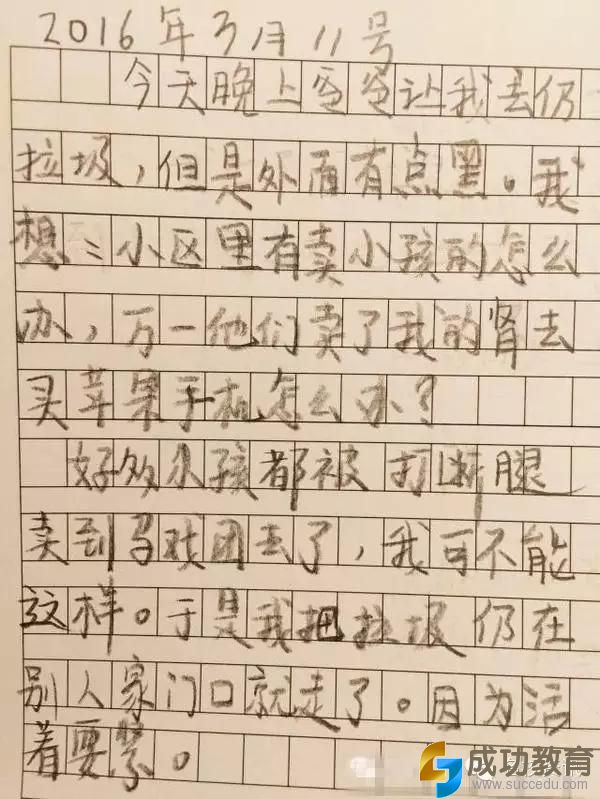 2016年3月11号
今天晚上爸爸让我去仍
垃圾,但是外面有点黑。我
想:小区里有卖小孩的怎么
办,万一他们卖了我的肾去
买苹果手机怎么办?
好多小孩都被打断腿
卖到马戏团去了,我可不能
这样。于是我把垃圾仍在
别人家门口就走了。因为活
着要紧。
成功教育
www.succedu.com